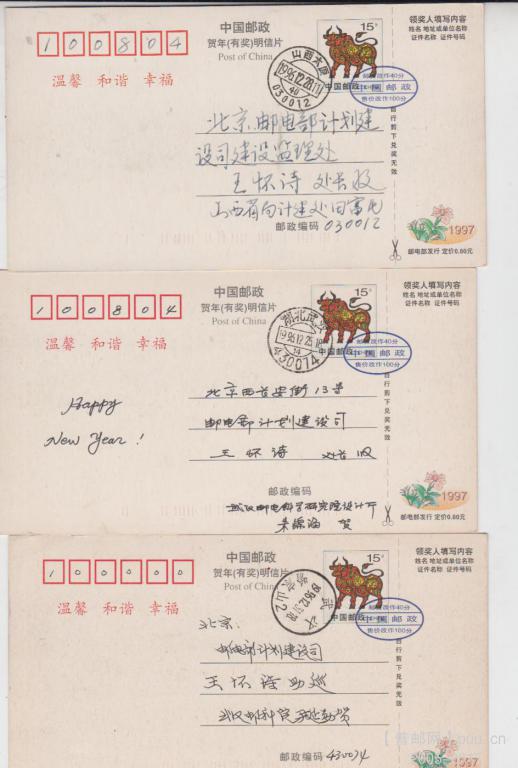 中国邮政
贺年(有奖)明信片
Post of China
100804
温馨 和谐 幸福
15分
中国邮政
领奖人填写内容
姓名 地址或单位名称
证件名称 证件号码
山西太原
1996.12.28.11
40
030012
邮资改作40分
中国邮政
售价改作100分
自行剪下兑奖无效
北京邮电部计划建
设司建设监理处
王怀诗 处长收
山西省
邮政编码 030012
1997
邮电部发行 定价0.60元
中国邮政
贺年(有奖)明信片
Post of China
100804
温馨 和谐 幸福
15分
中国邮政
领奖人填写内容
姓名 地址或单位名称
证件名称 证件号码
湖北武
1996.12.25
430074
邮资改作40分
中国邮政
售价改作100分
自行剪下兑奖无效
Happy
New Year!
北京西长安街13号
邮电部计划建设司
王怀诗 处长 收
邮政编码
武汉邮电科学研究院设计所
贺
1997
邮电部发行 定价0.60元
中国邮政
贺年(有奖)明信片
Post of China
100000
温馨 和谐 幸福
15分
中国邮政
领奖人填写内容
姓名 地址或单位名称
证件名称 证件号码
武
山2
邮资改作40分
中国邮政
售价改作100分
自行剪下兑奖无效
北京:
邮电部计划建设司
王怀诗
武汉邮科院
邮政编码 430074